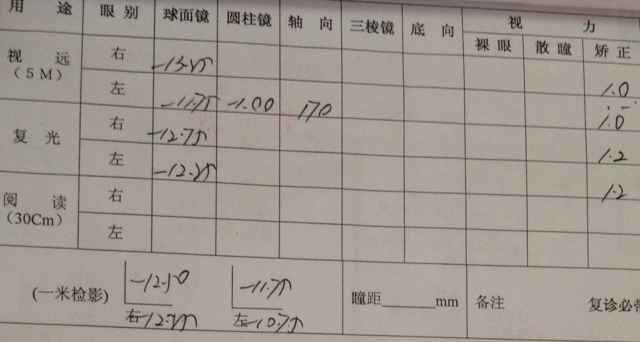 用 途 眼 别 球面镜 圆柱镜 轴 向 三棱镜 底 向 视 力
裸 眼 散 瞳 矫 正
视 远 (5M) 右 1.0
左 -11.75 -1.00 170 1.0
复 光 右 -12.75 1.2
左 -12.25 1.2
阅 读 (30Cm) 右
左
(一米检影) -12.50 -11.75 瞳距 mm 备注 复诊必带
右 左-10.75